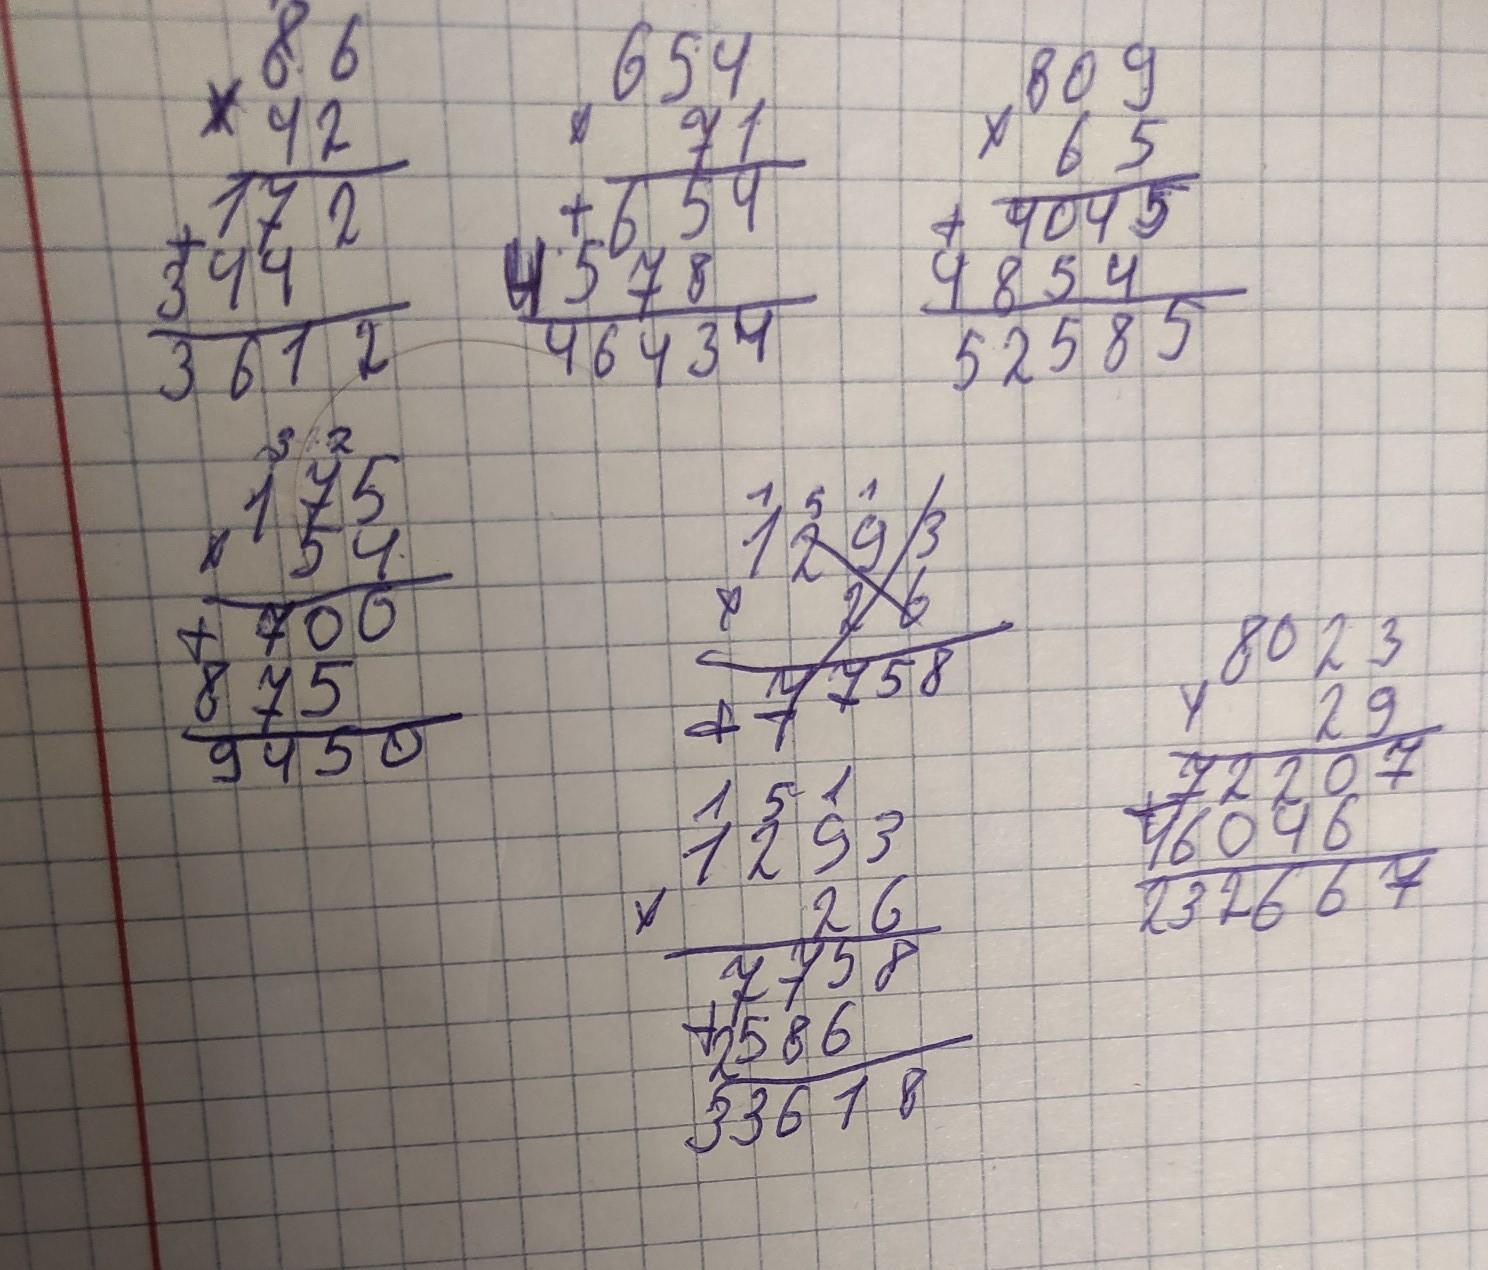 86
× 42
172
+
344
3612
654
× 71
+ 654
4578
46434
809
× 65
+ 4045
4854
52585
3 2
175
× 54
+ 700
875
9450
1 5 1
1293
× 26
7758
+
1 5 1
1293
× 26
7758
+
2586
33618
8023
× 29
72207
+
16046
232667